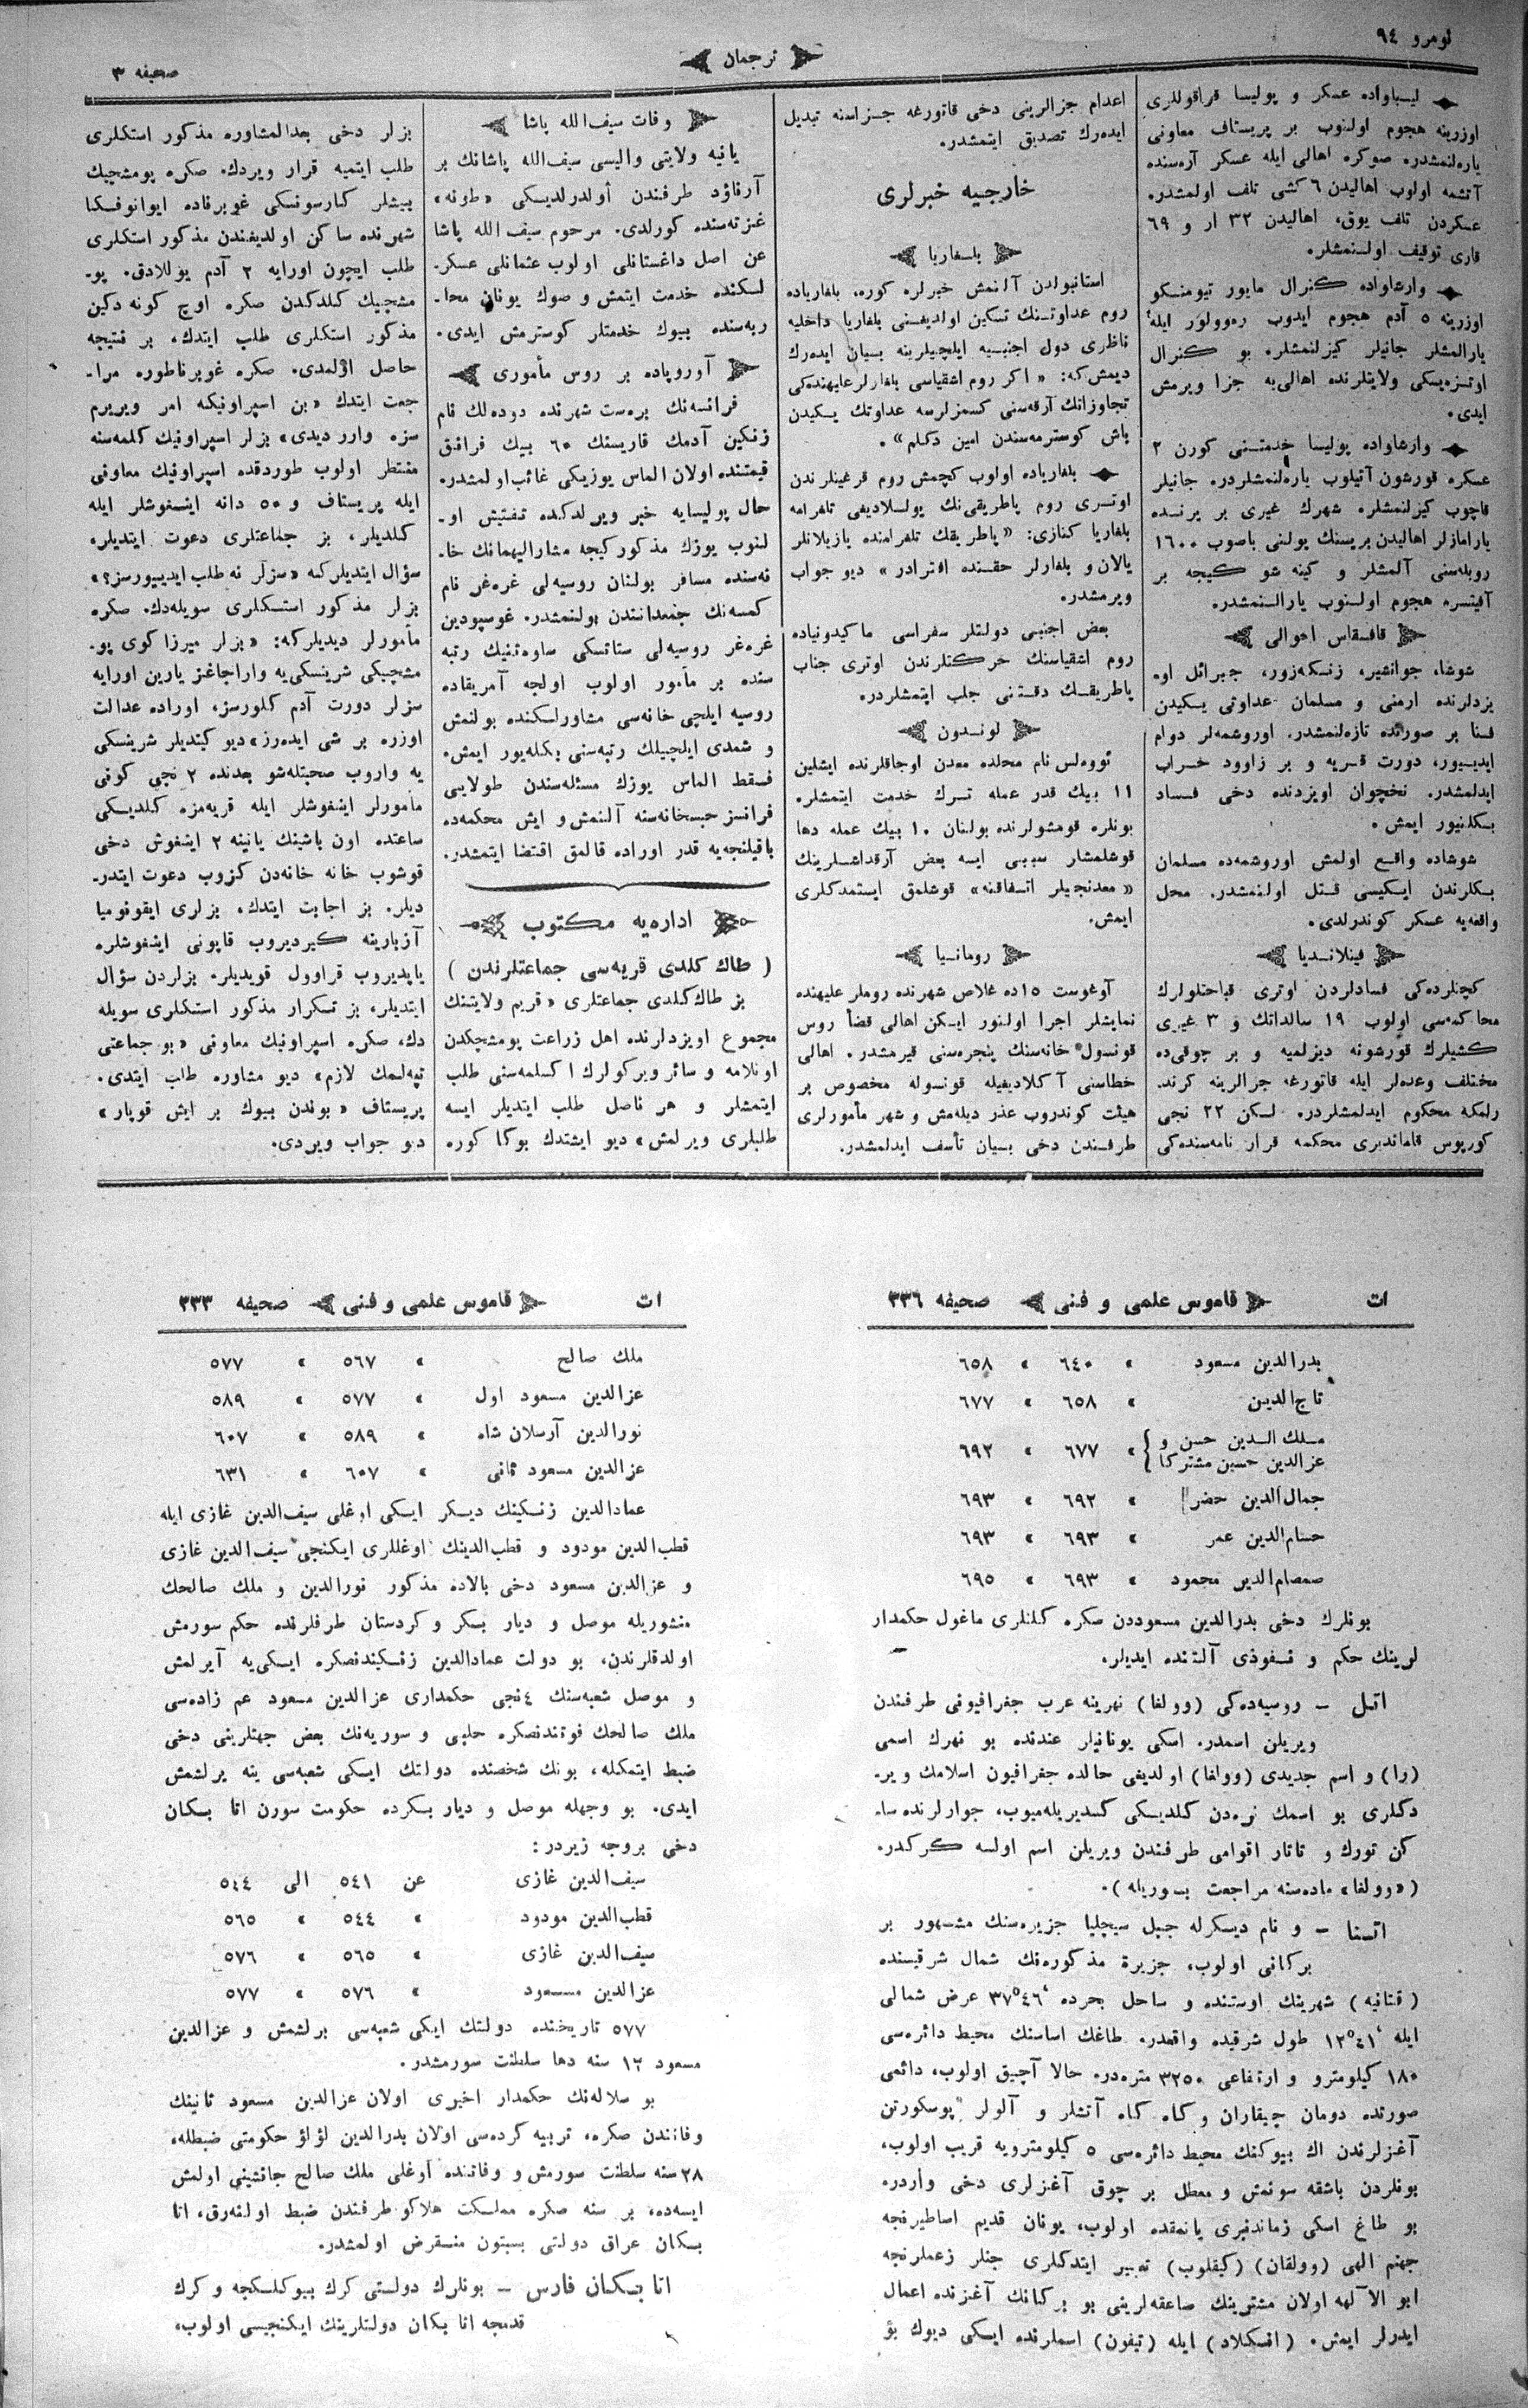 نومرو ٩٤
ترجمان
صحيفه ٣
ليباواده عسكر و پوليسا قراقوللری
اوزرينه هجوم اولنوب بر پريستاف معاونی
ياره‌لنمشدر. صوكره اهالی ايله عسكر آره‌سنده
آتشمه اولوب اهاليدن ٦ كشی تلف اولمشدر.
عسكردن تلف يوق، اهاليدن ٣٢ ار و ٦٩
قاری توقيف اولنمشلر.
وارشاواده كنرال مايور تيومنكو
اوزرينه ٥ آدم هجوم ايدوب ره‌وولور ايله
يارالمشلر جانيلر كيزلنمشلر. بو كنرال
ولايتلرنده اهالی‌يه جزا ويرمش
ايدی.
وارشاواده پوليسا خدمتنی كورن ٢
عسكره قورشون آتيلوب ياره‌لنمشلردر. جانيلر
قاچوب كيزلنمشلر. شهرك غيری بر يرنده
يارامازلر اهاليدن بريسنك يولنی باصوب ١٦٠٠
روبله‌سنی آلمشلر و كينه شو كيجه بر
آفيتسره هجوم اولنوب يارالنمشدر.
قافقاس احوالی
شوشا، جوانشير، زنكه‌زور، جبرائل او-
يزدلرنده ارمنی و مسلمان عداوتی يكيدن
فنا بر صورتده تازه‌لنمشدر. اوروشمه‌لر دوام
ايدييور، دورت قريه و بر زاوود خراب
ايدلمشدر. نخچوان اويزدنده دخی فساد
بكلنيور ايمش.
شوشاده واقع اولمش اوروشمه‌ده مسلمان
بكلرندن ايكيسی قتل اولنمشدر. محل
واقعه‌يه عسكر كوندرلدی.
فينلانديا
كچنلرده‌كی فسادلردن اوتری قباحتلولرك
محاكمه‌سی اولوب ١٩ سالداتك و ٣ غيری
كشيلرك قورشونه ديزلمه و بر چوقی‌ده
مختلف وعده‌لر ايله قاتورغه جزالرينه كرفتـ
رلمكه محكوم ايدلمشلردر. لكن ٢٢ نجی
كورپوس قامانديری محكمه قرار نامه‌سنده‌كی
اعدام جزالرينی دخی قاتورغه جزاسنه تبديل
ايده‌رك تصديق ايتمشدر.
خارجيه خبرلری
بلغاريا
استانبولدن آلنمش خبرلره كوره، بلغارياده
روم عداوتنك تسكين اولديغنی بلغاريا داخليه
ناظری دول اجنبيه ايلچيلرينه بيان ايده‌رك
ديمش‌كه: «اكر روم اشقياسی بلغارلر عليهنده‌كی
تجاوزاتك آرقه‌سنی كسمزلرسه عداوتك يكيدن
باش كوسترمه‌سندن امين دكلم».
بلغارياده اولوب كچمش روم قرغينلرندن
اوتری روم پاطريقی‌نك يوللاديغی تلغرامه
بلغاريا كنازی: «پاطريقك تلغرامنده يازيلانلر
يالان و بلغارلر حقنده افترادر» ديو جواب
ويرمشدر.
بعض اجنبی دولتلر سفراسی ماكيدونياده
روم اشقياسنك حركتلرندن اوتری جناب
پاطريقك دقتنی جلب ايتمشلردر.
لوندون
نووه‌لس نام محلده معدن اوجاقلرنده ايشلين
١١ بيك قدر عمله ترك خدمت ايتمشلر.
بونلره قومشولرنده بولنان ١٠ بيك عمله دها
قوشلمشار سببی ايسه بعض آرقداشلرينك
«معدنجيلر اتفاقنه» قوشلمق ايستمدكلری
ايمش.
رومانيا
آوغوست ١٥ده غلاص شهرنده روملر عليهنده
نمايشلر اجرا اولنور ايكن اهالی قضاً روس
قونسول خانه‌سنك پنجره‌سنی قيرمشدر. اهالی
خطاسنی آكلاديغيله قونسوله مخصوص بر
هيئت كوندروب عذر ديله‌مش و شهر مأمورلری
طرفندن دخی بيان تأسف ايدلمشدر.
وفات سيف الله پاشا
يانيه ولايتی واليسی سيف الله پاشانك بر
آرناؤد طرفندن أولدرلديكی «طونه»
غزته‌سنده كورلدی. مرحوم سيف الله پاشا
عن اصل داغستانلی اولوب عثمانلی عسكر-
لكنده خدمت ايتمش و صوك يونان محا-
ربه‌سنده بيوك خدمتلر كوسترمش ايدی.
آوروپاده بر روس مأموری
فرانسه‌نك بره‌ست شهرنده دوده‌لك نام
زنكين آدمك قاريسنك ٦٠ بيك فرانق
قيمتنده اولان الماس يوزيكی غائب اولمشدر.
حال پوليسايه خبر ويرلدكده تفتيش او-
لنوب يوزك مذكور كيجه مشاراليهمانك خا-
نه‌سنده مسافر بولنان روسيه‌لی غره‌غر نام
كمسه‌نك جمعدانندن بولنمشدر. غوسپودين
غره‌غر روسيه‌لی ستاتسكی ساوه‌تنيك رتبه
سنده بر مأمور اولوب اولجه آمريقاده
روسيه ايلچی خانه‌سی مشاورلكنده بولنمش
و شمدی ايلچيلك رتبه‌سنی بكله‌يور ايمش.
فقط الماس يوزك مسئله‌سندن طولايی
فرانسز حبسخانه‌سنه آلنمش و ايش محكمه‌ده
باقيلنجه‌يه قدر اوراده قالمق اقتضا ايتمشدر.
اداره‌يه مكتوب
( طاك كلدی قريه‌سی جماعتلرندن )
بز طاك‌كلدی جماعتلری «قريم ولايتنك
مجموع اويزدلرنده اهل زراعت پومشچكدن
اونلامه و سائر ويركولرك اكسلمه‌سنی طلب
ايتمشلر و هر ناصل طلب ايتديلر ايسه
طلبلری ويرلمش» ديو ايشتدك بوكا كوره
بزلر دخی بعدالمشاوره مذكور استكلری
طلب ايتميه قرار ويردك. صكره پومشچيك
غوبرناده ايوانوفكا
شهرنده ساكن اولديغندن مذكور استكلری
طلب ايچون اورايه ٢ آدم يوللادق. پو-
مشچيك كلدكدن صكره اوچ كونه دكين
مذكور استكلری طلب ايتدك، بر نتيجه
حاصل اولمدی. صكره غوبرناطوره مرا-
جعت ايتدك «بن اسپراونيكه امر ويريرم
سزه وارر ديدی» بزلر اسپراونيك كلمه‌سنه
منتظر اولوب طوردقده اسپراونيك معاونی
ايله پريستاف و ٥٠ دانه اينغوشلر ايله
كلديلر، بز جماعتلری دعوت ايتديلر،
سؤال ايتديلركه «سزلر نه طلب ايدييورسز؟»
بزلر مذكور استكلری سويله‌دك. صكره
مأمورلر ديديلركه: «بزلر ميرزا كوی پو-
مشچيكی شرينسكی‌يه واراجاغز يارين اورايه
سزلر دورت آدم كلورسز، اوراده عدالت
اوزره بر شی ايده‌رز» ديو كيتديلر شرينسكی
يه واروب صحبتله‌شو بعدنده ٢ نجی كونی
مأمورلر اينغوشلر ايله قريه‌مزه كلديكی
ساعتده اون باشينك يانينه ٢ اينغوش دخی
قوشوب خانه خانه‌دن كزوب دعوت ايتدر-
ديلر. بز اجابت ايتدك، بزلری ايقونوميا
آزبارينه كيرديروب قاپونی اينغوشلره
ياپديروب قراوول قويديلر. بزلردن سؤال
ايتديلر، بز تكرار مذكور استكلری سويله
دك، صكره اسپراونيك معاونی «بو جماعتی
تپه‌لمك لازم» ديو مشاوره طلب ايتدی.
پريستاف «بوندن بيوك بر ايش قوپار»
ديو جواب ويردی.
ات
قاموس علمی و فنی
صحيفه ٣٣٦
بدرالدين مسعود » ٦٤٠ » ٦٥٨
تاج‌الدين » ٦٥٨ » ٦٧٧
ملك الدين حسن و
عزالدين حسين مشتركا } » ٦٧٧ » ٦٩٢
جمال‌الدين حضر » ٦٩٢ » ٦٩٣
حسام‌الدين عمر » ٦٩٣ » ٦٩٣
صمصام‌الدين محمود » ٦٩٣ » ٦٩٥
بونلرك دخی بدرالدين مسعوددن صكره كلنلری ماغول حكمدار
لرينك حكم و نفوذی آلتنده ايديلر.
اتل – روسيه‌ده‌كی (وولغا) نهرينه عرب جغرافيونی طرفندن
ويريلن اسمدر. اسكی يونانيلر عندنده بو نهرك اسمی
(را) و اسم جديدی (وولغا) اولديغی حالده جغرافيون اسلامك وير-
دكلری بو اسمك نره‌دن كلديكی كسديريله‌ميوب، جوارلرنده سا-
كن تورك و تاتار اقوامی طرفندن ويريلن اسم اولسه كركدر.
(«وولغا» ماده‌سنه مراجعت بوريله).
اتنا – و نام ديكرله جبل سيچليا جزيره‌سنك مشهور بر
بركانی اولوب، جزيرهٔ مذكوره‌نك شمال شرقيسنده
(قتانيه) شهرينك اوستنده و ساحل بحرده ٣٧°٤٦ʹ عرض شمالی
ايله ١٢°٤١ʹ طول شرقيده واقعدر. طاغك اساسنك محيط دائره‌سی
١٨٠ كيلومترو و ارتفاعی ٣٢٥٠ متره‌در. حالا آچيق اولوب، دائمی
صورتده دومان چيقاران و كاه كاه آتشلر و آلولر پوسكورتن
آغزلرندن اك بيوكنك محيط دائره‌سی ٥ كيلومترويه قريب اولوب،
بونلردن باشقه سونمش و معطل بر چوق آغزلری دخی واردر.
بو طاغ اسكی زماندنبری يانمقده اولوب، يونان قديم اساطيرنجه
جهنم الهی (وولقان) (كيقلوب) تعبير ايتدكلری جنلر زعملرنجه
ابو الآلهه اولان مشترينك صاعقه‌لرينی بو بركانك آغزنده اعمال
ايدرلر ايمش. (انسكلاد) ايله (تيفون) اسملرنده ايكی ديوك بو
ات
قاموس علمی و فنی
صحيفه ٣٣٣
ملك صالح » ٥٦٧ » ٥٧٧
عزالدين مسعود اول » ٥٧٧ » ٥٨٩
نورالدين آرسلان شاه » ٥٨٩ » ٦٠٧
عزالدين مسعود ثانی » ٦٠٧ » ٦٣١
عمادالدين زنكينك ديكر ايكی اوغلی سيف‌الدين غازی ايله
قطب‌الدين مودود و قطب‌الدينك اوغللری ايكنجی سيف‌الدين غازی
و عزالدين مسعود دخی بالاده مذكور نورالدين و ملك صالحك
منشوريله موصل و ديار بكر و كردستان طرفلرنده حكم سورمش
اولدقلرندن، بو دولت عمادالدين زنكيدنصكره ايكی‌يه آيرلمش
و موصل شعبه‌سنك ٤نجی حكمداری عزالدين مسعود عم زاده‌سی
ملك صالحك فوتندنصكره حلبی و سوريه‌نك بعض جهتلرينی دخی
ضبط ايتمكله، بونك شخصنده دولتك ايكی شعبه‌سی ينه برلشمش
ايدی. بو وجهله موصل و ديار بكرده حكومت سورن اتا بكان
دخی بروجه زيردر:
سيف‌الدين غازی عن ٥٤١ الی ٥٤٤
قطب‌الدين مودود » ٥٤٤ » ٥٦٥
سيف‌الدين غازی » ٥٦٥ » ٥٧٦
عزالدين مسعود » ٥٧٦ » ٥٧٧
٥٧٧ تاريخنده دولتك ايكی شعبه‌سی برلشمش و عزالدين
مسعود ١٢ سنه دها سلطنت سورمشدر.
بو سلاله‌نك حكمدار اخيری اولان عزالدين مسعود ثانينك
وفاتندن صكره، تربيه كرده‌سی اولان بدرالدين لؤلؤ حكومتی ضبطله،
٢٨ سنه سلطنت سورمش و وفاتنده اوغلی ملك صالح جانشينی اولمش
ايسه‌ده، بر سنه صكره مملكت هلاكو طرفندن ضبط اولنه‌رق، اتا
بكان عراق دولتی بسبتون منقرض اولمشدر.
اتا بكان فارس – بونلرك دولتی كرك بيوكلكجه و كرك
قدمجه اتا بكان دولتلرينك ايكنجيسی اولوب،